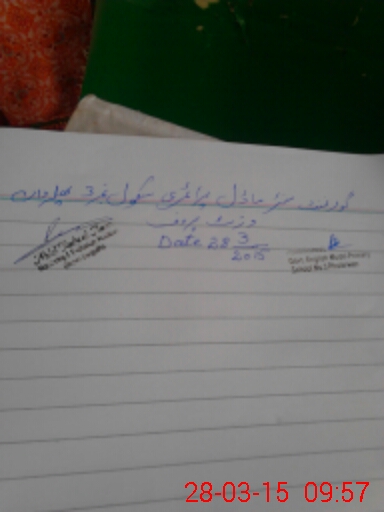 گورنمنٹ سنٹر ماڈل پرائمری سکول نمبر 3 پھلروان
وزٹ پروف
Date 28 3/2015
Govt. English Model Primary
School No.3 Phularwan
28-03-15 09:57